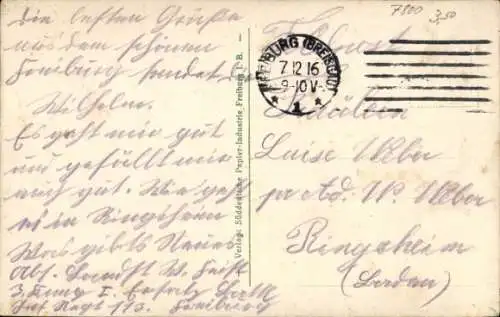 Die besten Grüße
aus dem schönen
Freiburg sendet
Wilhelm.
Es geht mir gut
und gefällt mir
auch gut. Wie geht
es in Ringsheim
Was gibts Neues
Abs. W.
3. I. Ersatz Batl.
Inf Regt 113. Freiburg
Verlag: Süddeutsche Papier-Industrie Freiburg i. B.
7800
3,50
FREIBURG (BREISGAU)
7 12 16
9-10 V.
* 1 *
Fräulein
Luise Weber
pr Ad. W. Weber
Ringsheim
(Baden)